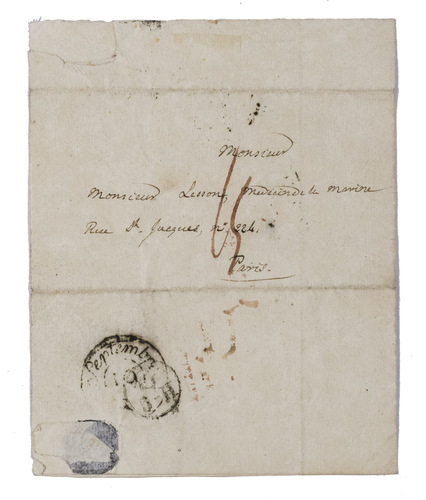 Monsieur
Monsieur Lesson, Médecin de la marine
Rue St. Jacques, n° 224.
Paris.
Septembre